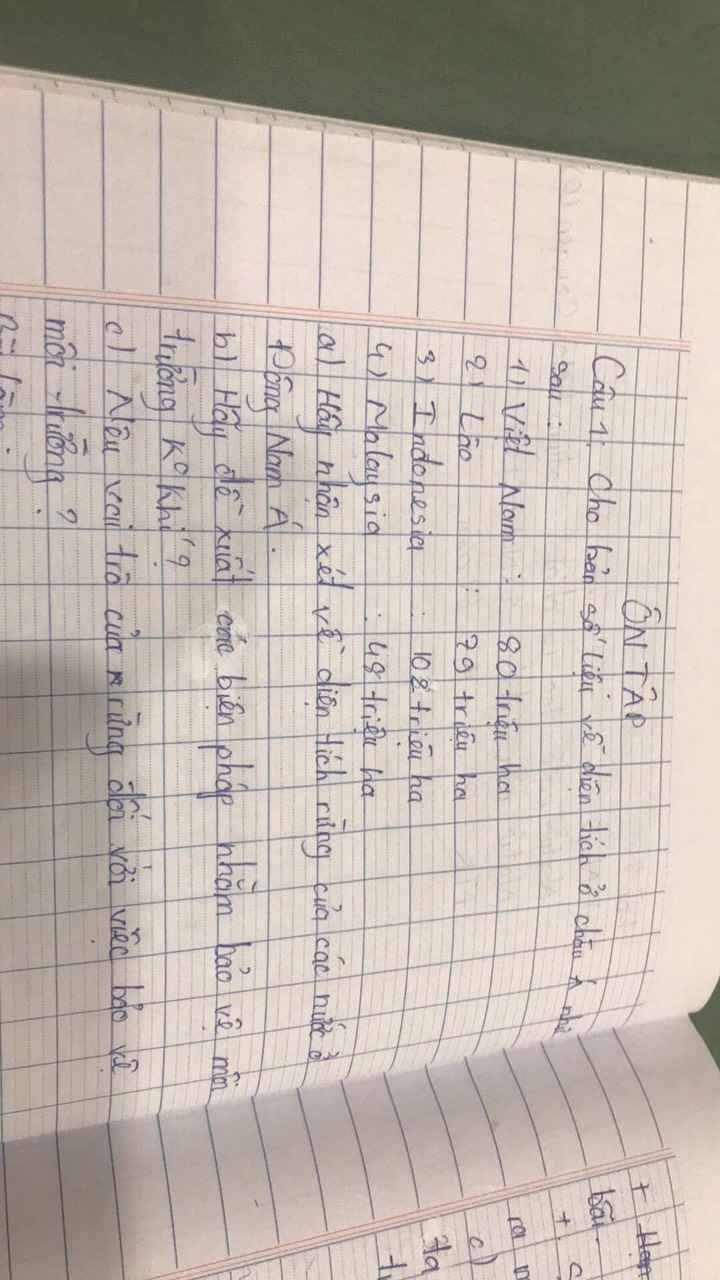 ÔN TẬP
Câu 1: Cho bản số liệu về diện tích ở châu Á như
sau:
1) Việt Nam : 80 triệu ha
2) Lào : 79 triệu ha
3) Indonesia : 102 triệu ha
4) Malaysia : 48 triệu ha
a) Hãy nhận xét về diện tích rừng của các nước ở
Đông Nam Á.
b) Hãy đề xuất các biện pháp nhằm bảo vệ môi
trường K° Khí ?
c) Nêu vai trò của rừng đối với việc bảo vệ
môi trường ?
+
bài.
+
ra
c)
ta